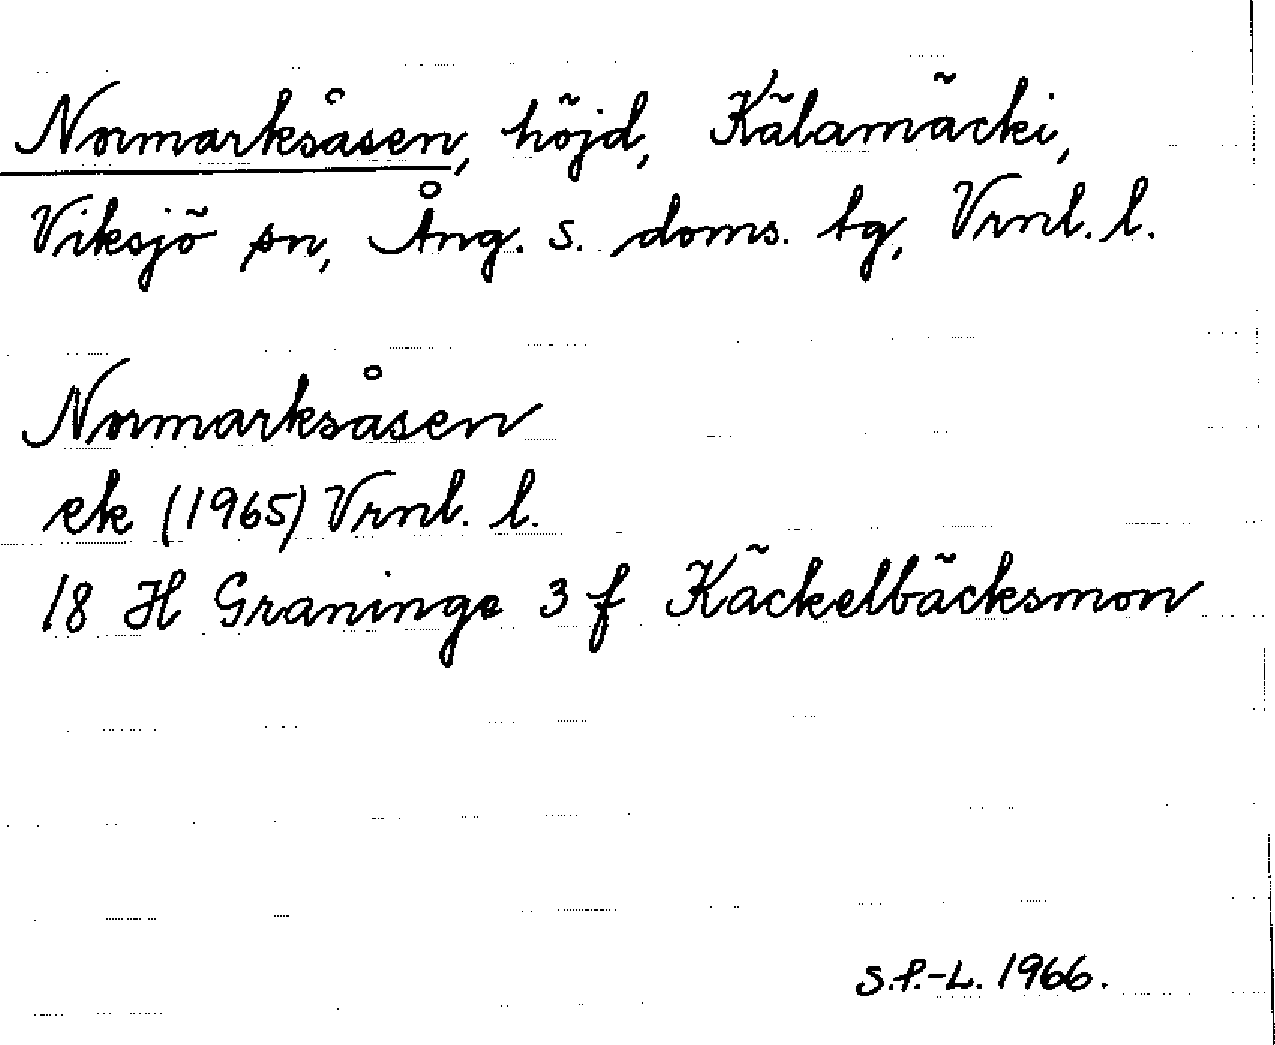 Normarksåsen, höjd, Kälamäcki,
Viksjö sn, Ång. s. doms. tg, Vrnl. l.
Normarksåsen
ek (1965) Vrnl. l.
18 H Graninge 3 f Käckelbäcksmon
S.P.-L. 1966.